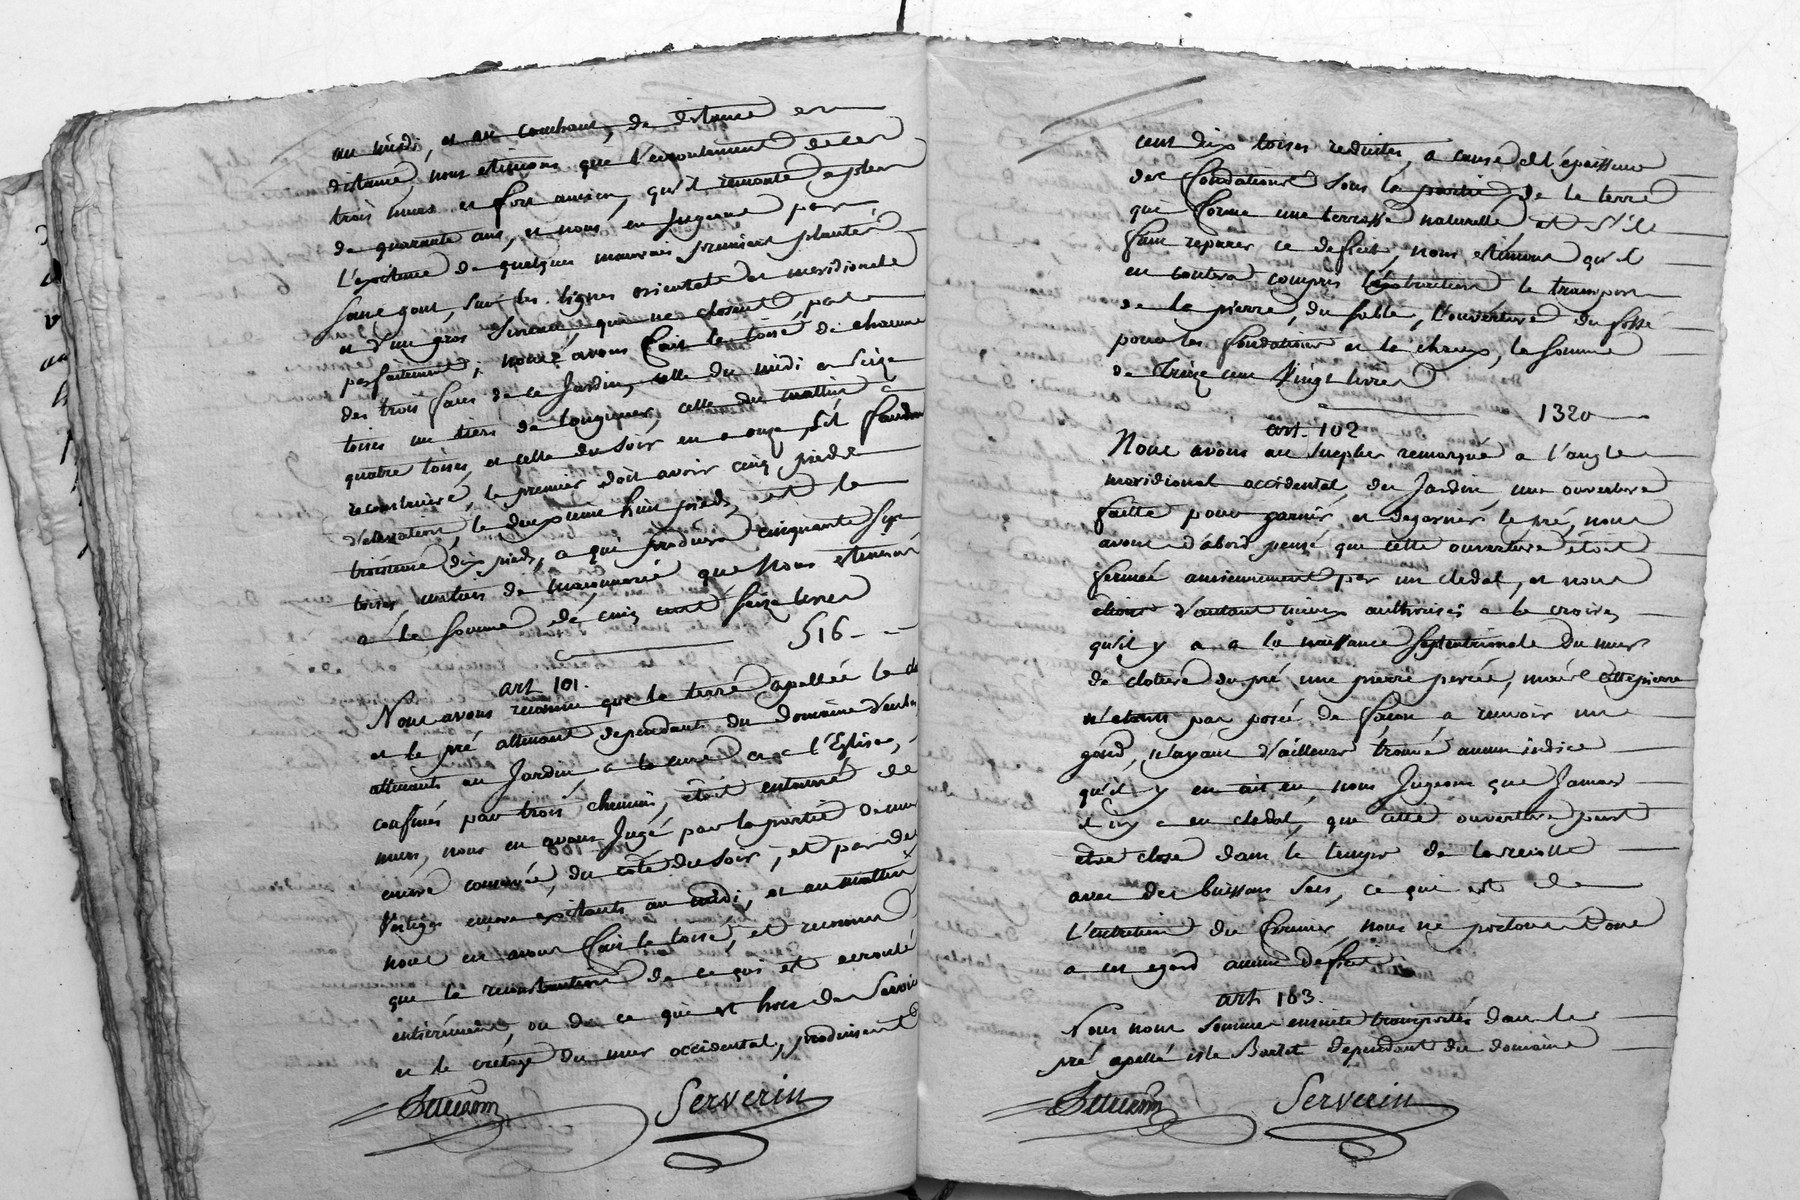 au midi, et au couchant, de distance en
distance, nous estimons que l'ecroulement de ces
trois murs est fort ancien, qu'il remonte a plus
de quarante ans, et nous en jugeons par
l'existence de quelques mauvais pruniers plantés
sans gout, sur les lignes orientale et meridionale
et d'un gros sureau, qui ne closent pas
parfaitement; nous avons fait le toisé de chacune
des trois faces de ce Jardin, celle du midi a seize
toises un tiers de longueur, celle du mattin
quatre toises, et celle du soir en a onze, s'il faudra
reconstruire, le premier doit avoir cinq pieds
d'elevation, le deuxieme huit pieds, et le
troisieme dix pieds, a qui produira cinquante six
toises un tiers de maçonnerie que Nous estimons
a la somme de cinq cent seize livres
516
art 101.
Nous avons reconnu que la terre apellée le
et le pré attenant dependants du Domaine
attenants au Jardin, a la cure et a l'Eglise,
confinés par trois chemins, étoit entourré de
murs, nous en avons Jugé par la partie de mur
encore conservée, du coté du soir, et par des
Vestiges encore existants au midi, et au mattin
nous en avons fait le toisé, et reconnu
que la reconstruction de ce qui est ecroulé
entierement, ou de ce qui est hors de Service
et le cretage du mur occidental, produisent
Serverin
cent dix toises reduites, a cause de l'epaisseur
des fondations sous la partie de la terre
qui forme une terrasse naturelle, et s'il
faut reparer ce deficit, nous estimons qu'il
en coutera compris l'extraction le transport
de la pierre, du sable, l'ouverture du fossé
pour les fondations et la chaux, la somme
de Treize cent Vingt livres
1320
art. 102
Nous avons au surplus remarqué a l'angle
meridional occidental du Jardin, une ouverture
faitte pour garnir, et degarnir le pré, nous
avons d'abord pensé que cette ouverture étoit
fermée anciennement par un cledat, et nous
etions d'autant mieux authorisés a le croire,
qu'il y a a la naissance septentrionale du mur
de cloture du pré, une pierre percée, mais cette pierre
n'etant pas posée de façon a recevoir un
gond, n'ayant d'ailleurs trouvé aucun indice
qu'il y en ait eu, nous Jugeons que Jamais
il n'y a eu cledat, que cette ouverture peut
etre close dans le temps de la recolte
avec des buissons secs, ce qui est de
l'entretien du fermier, nous ne portons donc
a cet egard aucun deficit.
art. 103.
Nous nous sommes ensuite transportés dans le
pré apellé isle Bartet dependant du domaine
Serverin